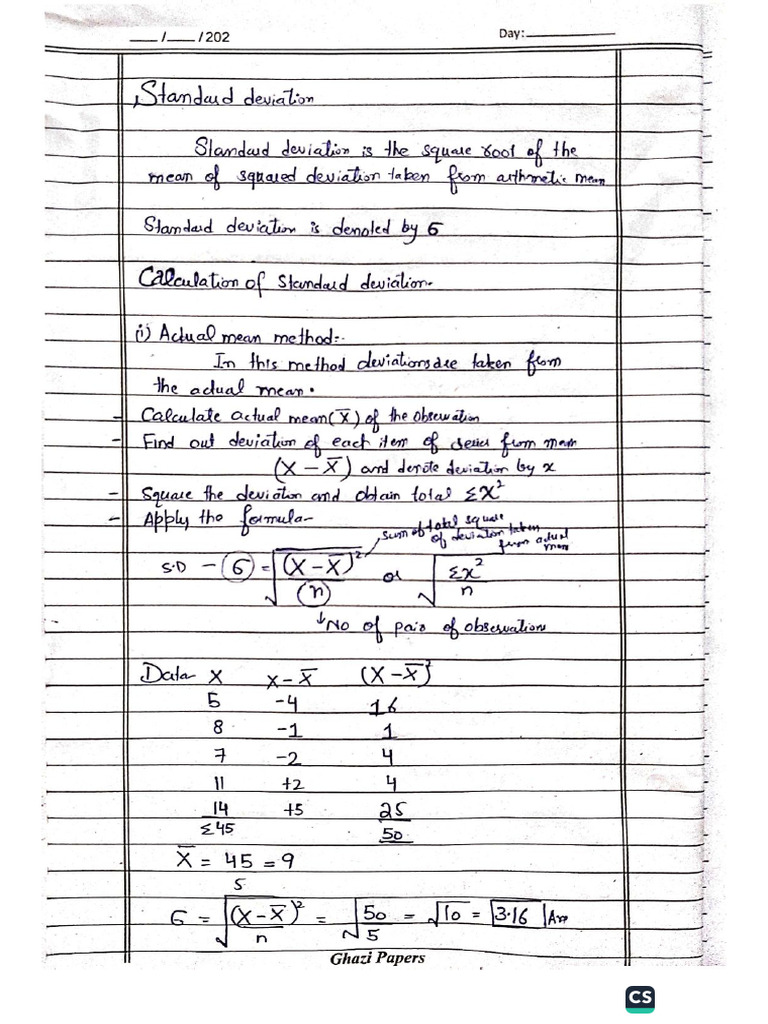 __/__/202 Day:______
Standard deviation
Standard deviation is the square root of the
mean of squared deviation taken from arthmetic mean
Standard deviation is denoted by 6
Calculation of standard deviation.
(i) Actual mean method:-
In this method deviations are taken from
the actual mean.
- Calculate actual mean (X̄) of the observation
- Find out deviation of each item of series from mean
(X – X̄) and denote deviation by x
- Square the deviation and obtain total Σx²
- Apply the formula-
sum of total square
of deviation taken
from actual
mean
S.D – 6 = √(X – X̄)²/(n) or √Σx²/n
↓No of pair of observation
Data X X – X̄ (X – X̄)²
5 -4 16
8 -1 1
7 -2 4
11 +2 4
14 +5 25
Σ45 50
X̄ = 45 = 9
5
6 = √(X – X̄)²/n = √50/5 = √10 = 3.16 Ans
Ghazi Papers
CS